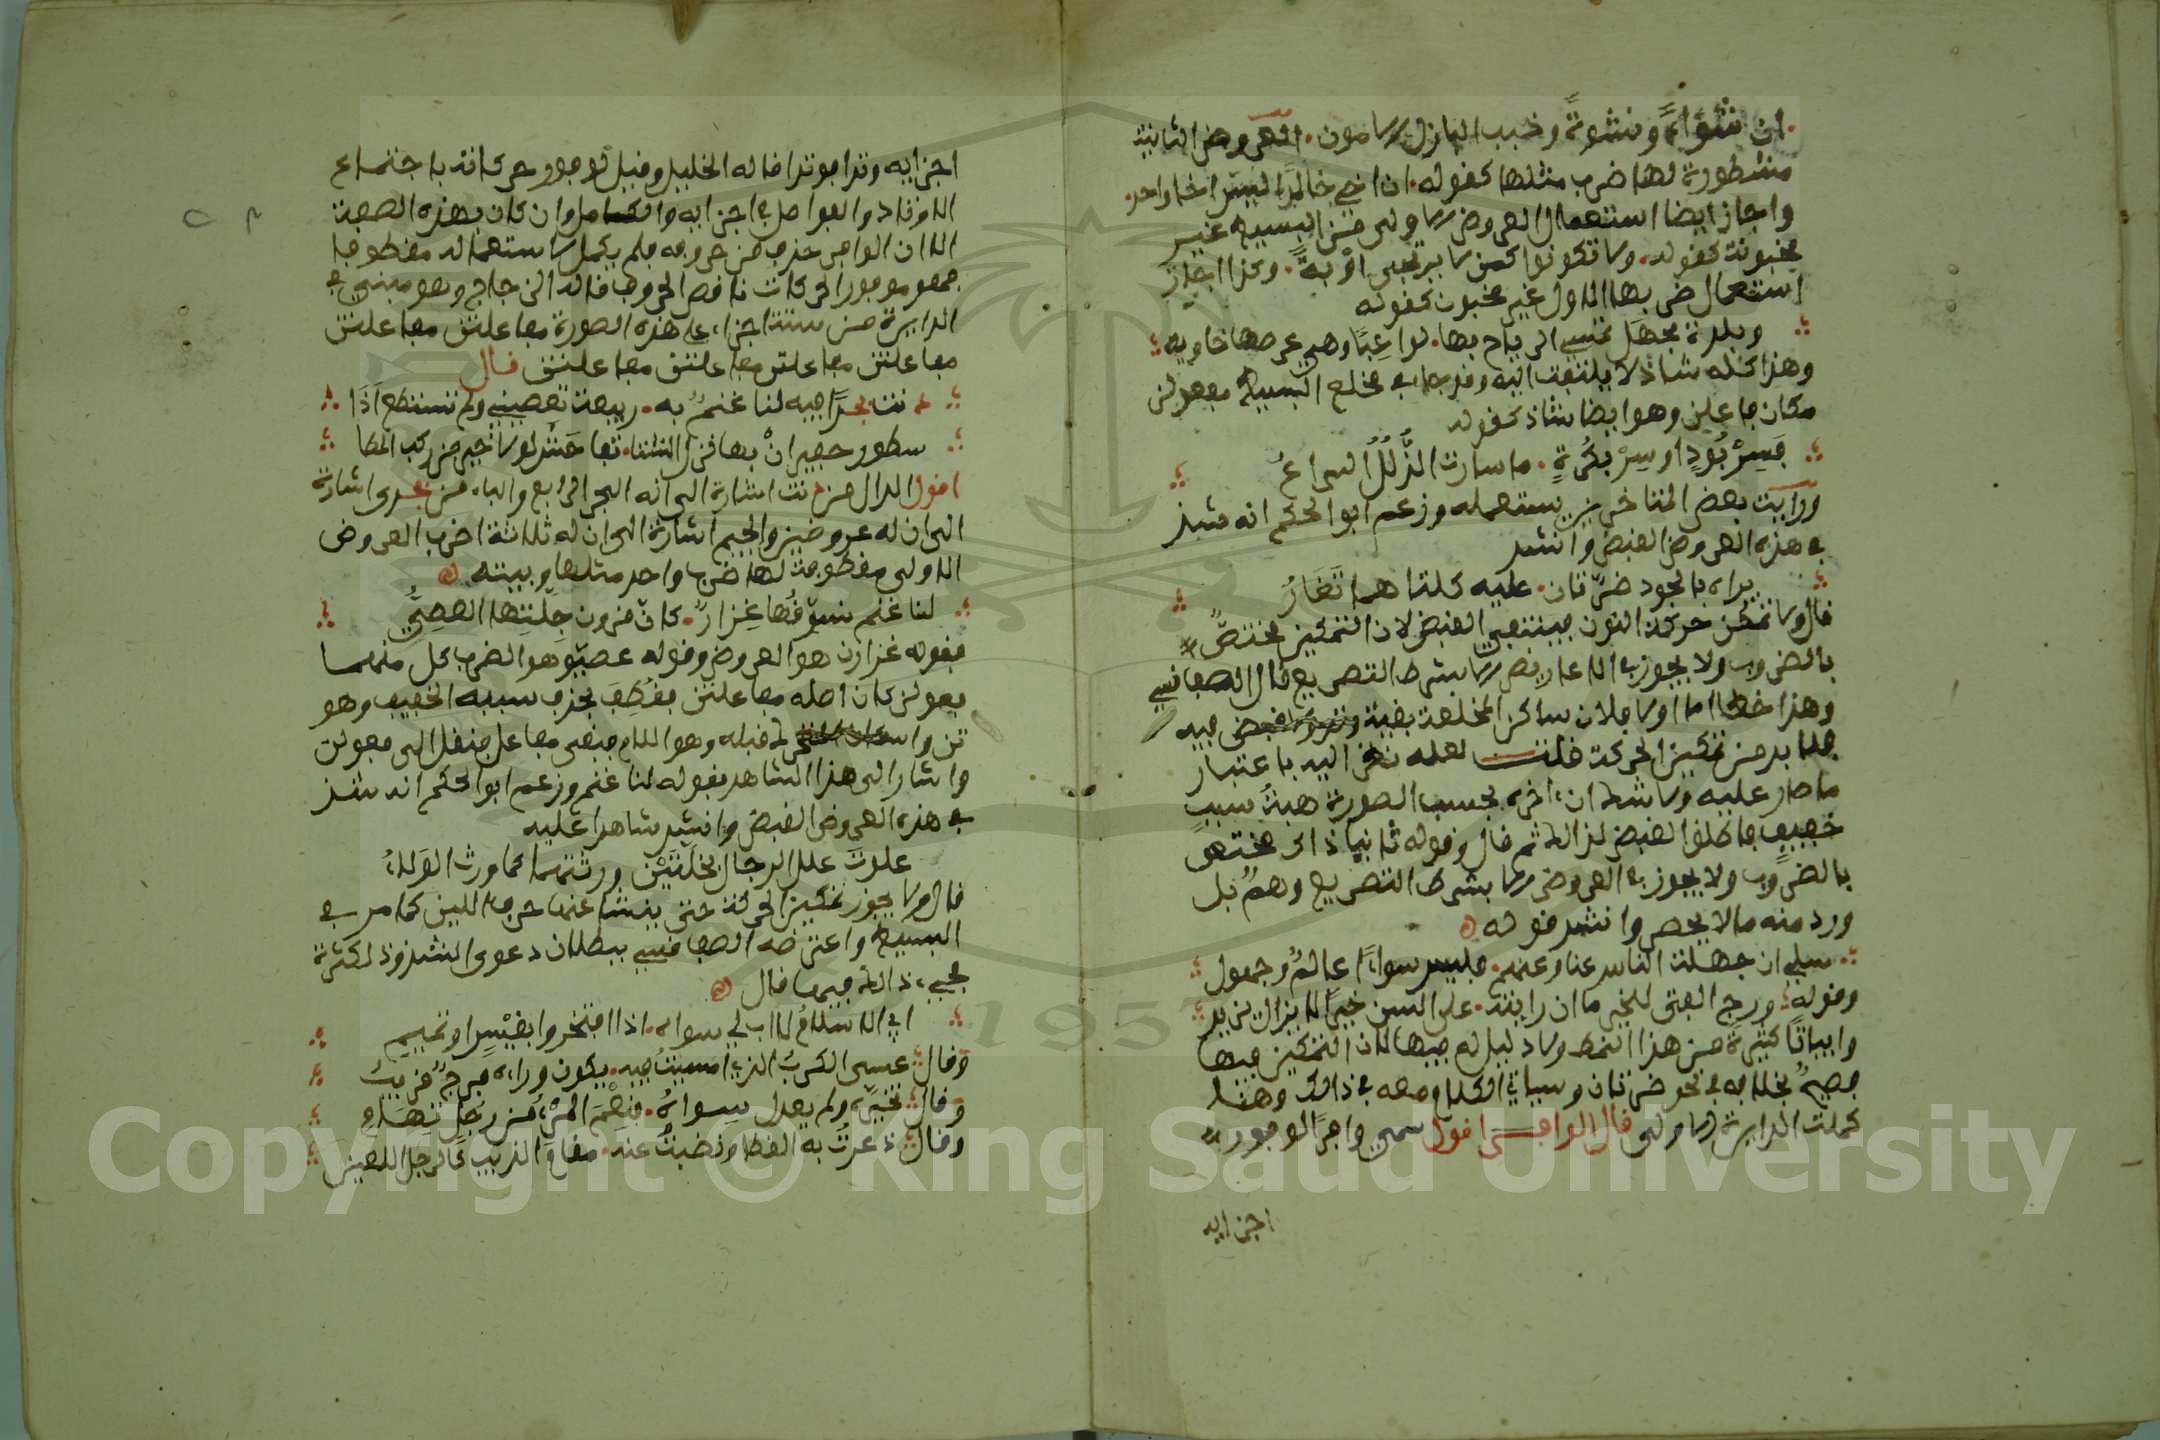 ان شواءً ونشوةً وخبب البازل الامون. العروض الثانية
مشطورة لها ضرب مثلها كقوله. ان اخي خالدا ليس اخا واحد
واجاز ايضا استعمال العروض الاولى من البسيط غير
مخبونة كقوله. ولا تكونوا كمن لا يرتجى اوبةً. وكذا اجاز
استعمال ضربها الاول غير مخبون كقوله
وبلدة مجهل تمسي الرياح بها. لواعبًا وهي عرصها خاوية
وهذا كله شاذ لا يلتفت اليه وقد جاء في مخلع البسيط مفعولن
مكان فاعلن وهو ايضا شاذ كقوله
فسر بودٍ او سر بكرهٍ. ما سارت الذلل السراع
ورايت بعض المتاخرين يستعمله وزعم ابو الحكم انه شذ
في هذه العروض القبض وانشد
يراه بالجود ضرتان. عليه كلتاهما تغار
قال ولا تمكن حركة النون فينتفي القبض لان التمكين مختص
بالضروب ولا يجوز في الاعاريض الا بشرط التصريع قال الصفاقسي
وهذا خطا اما اولا فلان ساكن المخلعة بقية فيه
فلا بد من تمكين الحركة قلت لعله نظر اليه باعتبار
ما صار عليه ولا شك ان اخره بحسب الصورة هيئة سبب
خفيف فاطلق القبض لذالك ثم قال وقوله ثانيا ذالك مختص
بالضروب ولا يجوز في العروض الا بشرط التصريع وهمٌ بل
ورد منه ما لا يحصى وانشد قوله
سلي ان جهلت الناس عنا وعنهم. فليس سواءً عالمٌ وجهول
وقوله ورج الفتى للخير ما ان رايته. على السن خيرا لا يزال يزيد
وابياتا كثيرة من هذا النمط ولا دليل له فيها لان التمكين فيها
فصيح بخلافه في نحو ضرتان وسياتي الكلام معه في ذالك وهنا
كملت الدايرة الاولى قال الوافر اقول سمي وافرا لوفور
اجزايه
اجزايه وتدا فوتدا قاله الخليل وقيل لوفور حركاته باجتماع
الاوتاد والفواصل في اجزايه والكامل وان كان بهذه الصفة
الا ان الوافر حذف من حروفه فلم يكمل لاستعماله مقطوفا
فهو موفور الحركات ناقص الحروف قاله الزجاج وهو مبني في
الدايرة من ستة اجزاء على هذه الصورة مفاعلتن مفاعلتن
مفاعلتن مفاعلتن مفاعلتن مفاعلتن قال
دنت بجدًا فيه لنا غنمٌ به. ربيعة تعصيني ولم تستطع اذا
سطور حفير ان بها نزل الشتا. تفاحش لولا خير من ركب المطا
اقول الدال من دنت اشارة الى انه البحر الرابع والباء من بجدى اشارة
الى ان له عروضين والجيم اشارة الى ان له ثلاثة اضرب العروض
الاولى مقطوفة لها ضرب واحد مثلها وبيته
لنا غنم نسوقها غزارٌ. كان قرون جلتها العصيُّ
فقوله غزارن هو العروض وقوله عصيو هو الضرب كل منهما
فعولن كان اصله مفاعلتن فقطف بحذف سببه الخفيف وهو
تن واسكان ما قبله وهو اللام فبقي مفاعل فنقل الى فعولن
واشار الى هذا الشاهد بقوله لنا غنم وزعم ابو الحكم انه شذ
في هذه العروض القبض وانشد شاهدا عليه
علوت على الرجال بخلتين ورثتهما كما ورث الولاء
قال ولا يجوز تمكين الحركة حتى ينشا عنها حرف اللين كما مر في
البسيط واعترضه الصفاقسي ببطلان دعوى الشذوذ لكثرة
مجيء ذالك فيها قال
ابي الاسلام لا اب لي سواه. اذا افتخروا بقيس او تميم
وقال عسى الكرب الذي امسيت فيه. يكون وراءه فرج قريب
وقال تخيره ولم يعدل سواه. فنعم المرء من رجل تهام
وقال ذعرت به القطا ونفيت عنه. مقام الذيب كالرجل اللعين